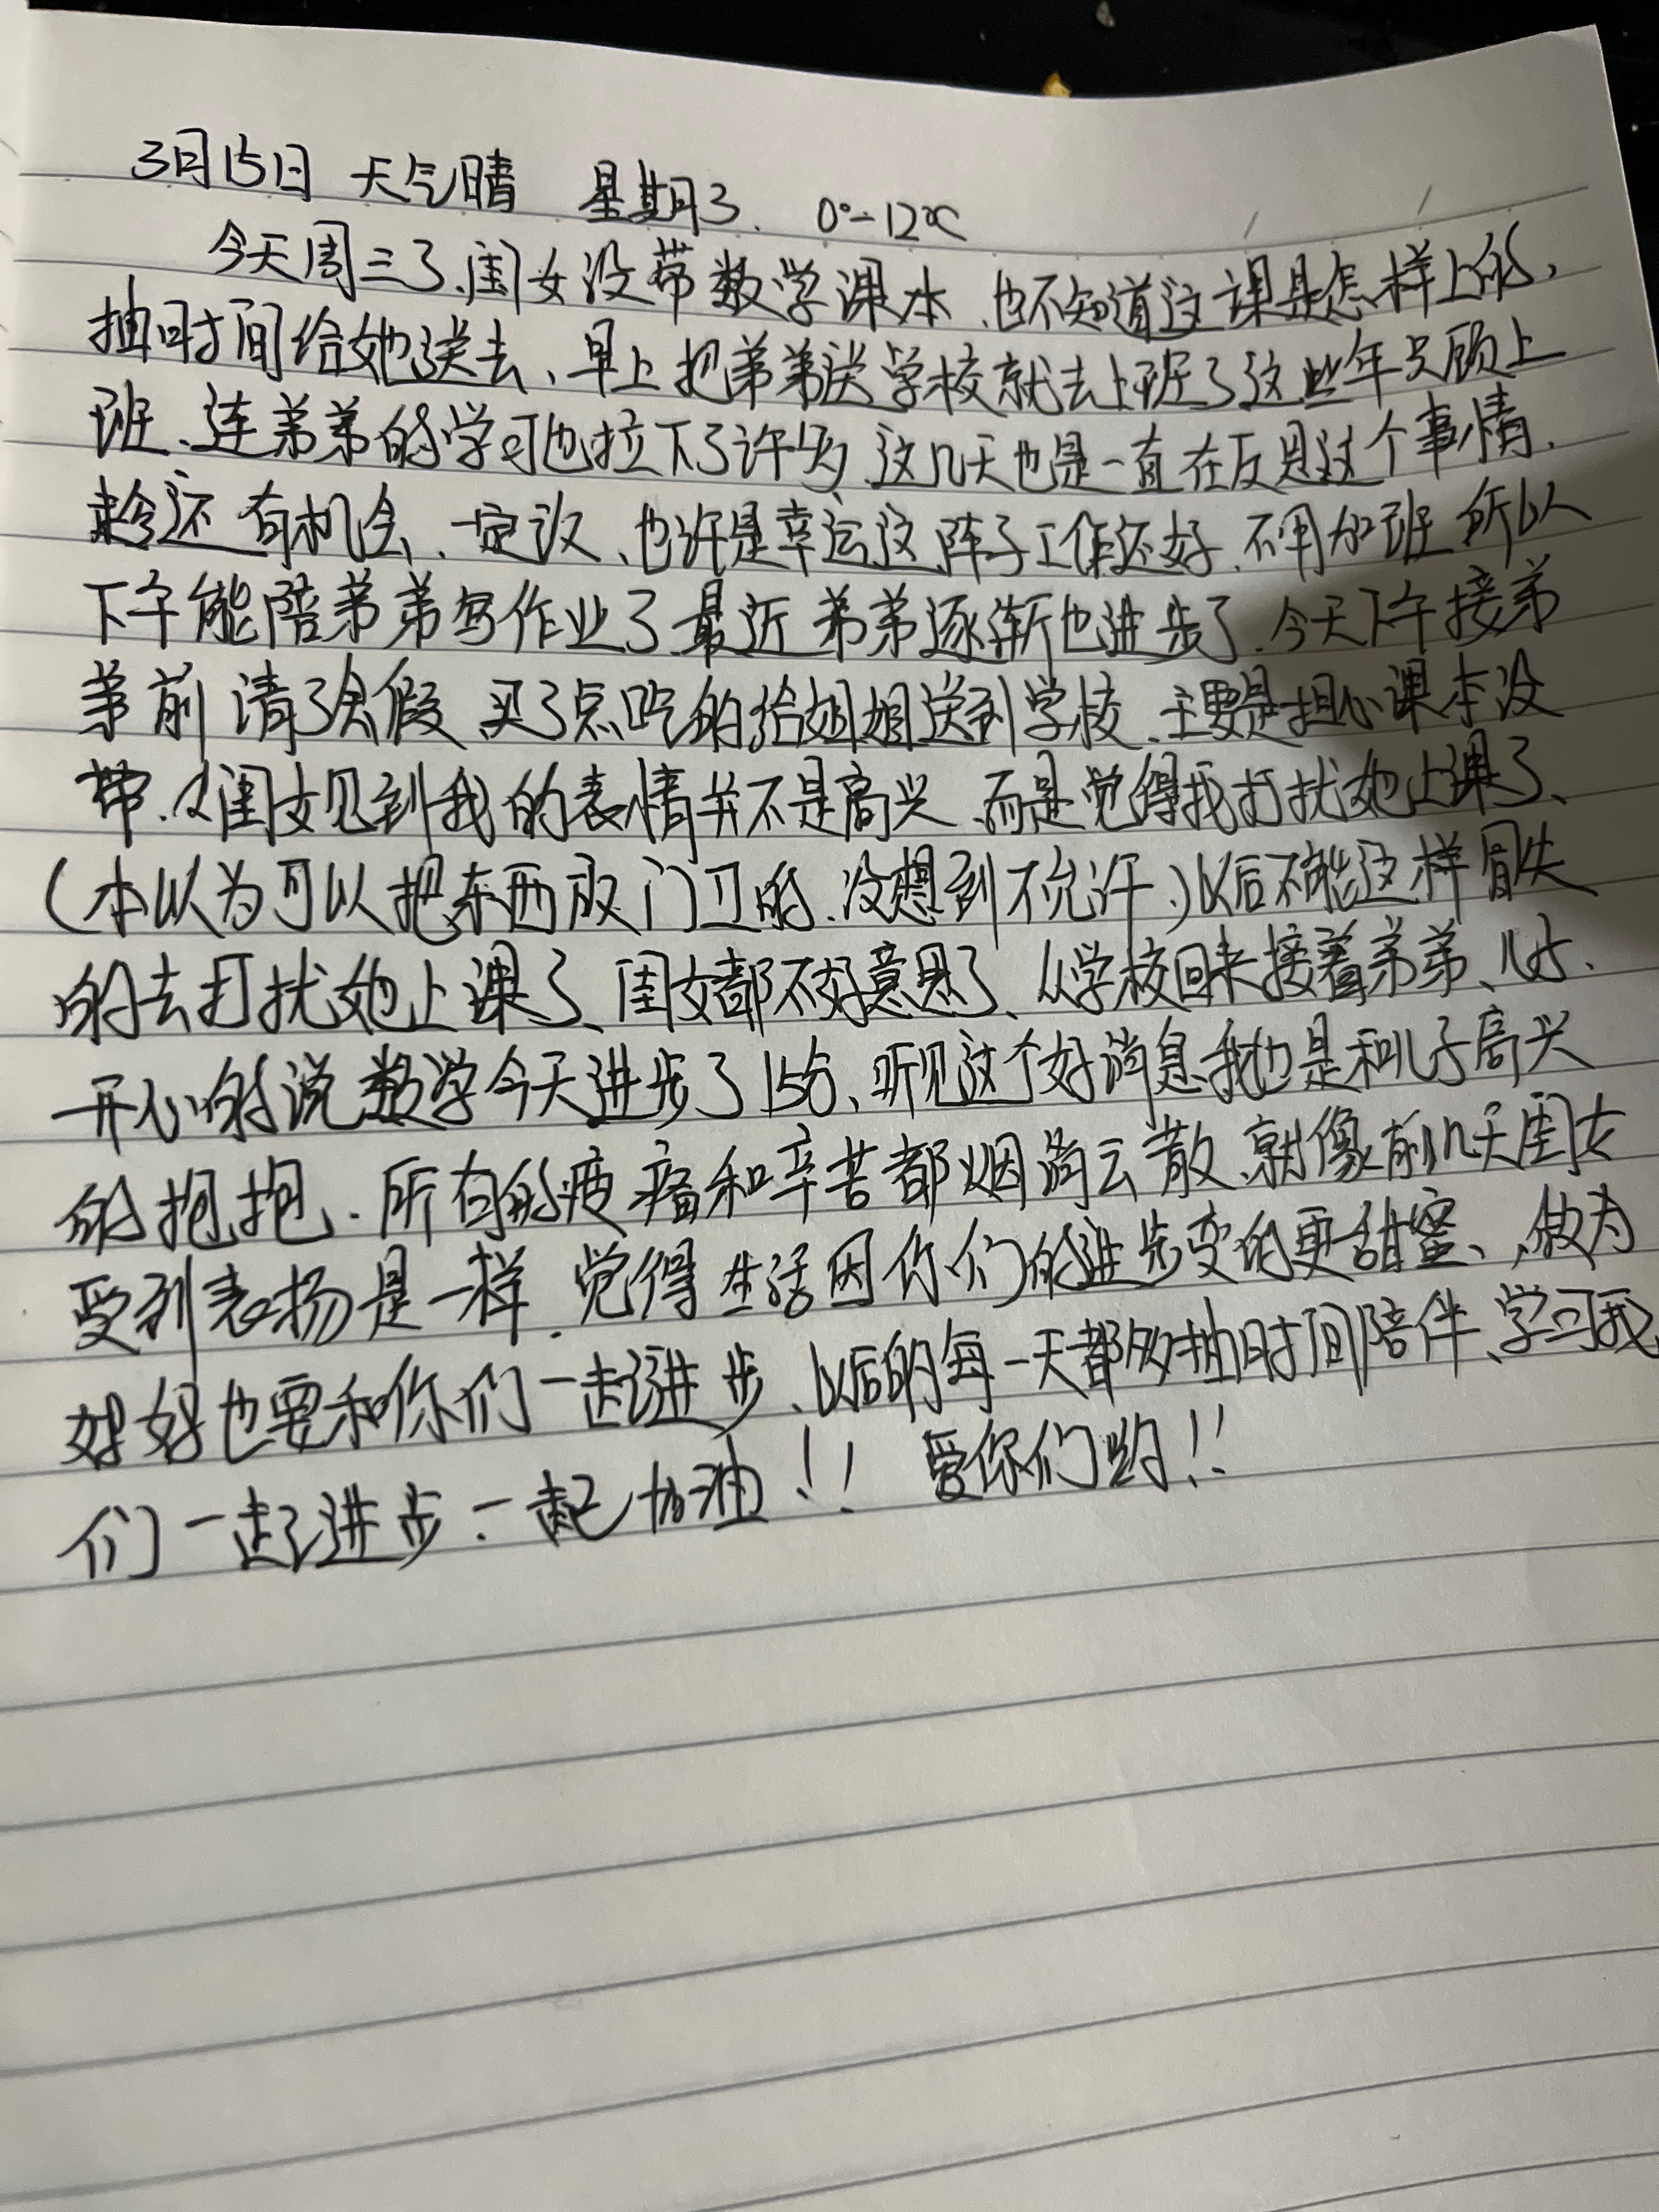 3月15日 天气晴 星期3. 0°-12℃
今天周三了、闺女没带数学课本、也不知道这课是怎样上的,
抽时间给她送去、早上把弟弟送学校就去上班了这些年只顾上
班、连弟弟的学习也拉下了许多.这几天也是一直在反思这个事情.
还有机会、一定议、也许是幸运这阵子工作还好.不用加班所以
下午能陪弟弟写作业了.最近弟弟逐渐也进步了.今天下午接弟
弟前请了会假、买了点吃的给姐姐送到学校、主要是担心课本没
带.闺女见到我的表情并不是高兴、而是觉得我打扰她上课了、
(本以为可以把东西放门卫的、没想到不允许、)以后不能这样冒失
的去打扰她上课了、闺女都不好意思了、从学校回来接着弟弟、
开心的说数学今天进步了15分、听见这个好消息我也是和儿子高兴
的抱抱、所有的疲痛和辛苦都烟消云散、就像前几天闺女
受到表扬是一样.觉得生活因你们的进步变的更甜蜜、,做为
妈妈也要和你们一起进步、以后的每一天都多抽时间陪伴、学习我
们一起进步.一起加油!! 爱你们哟!!